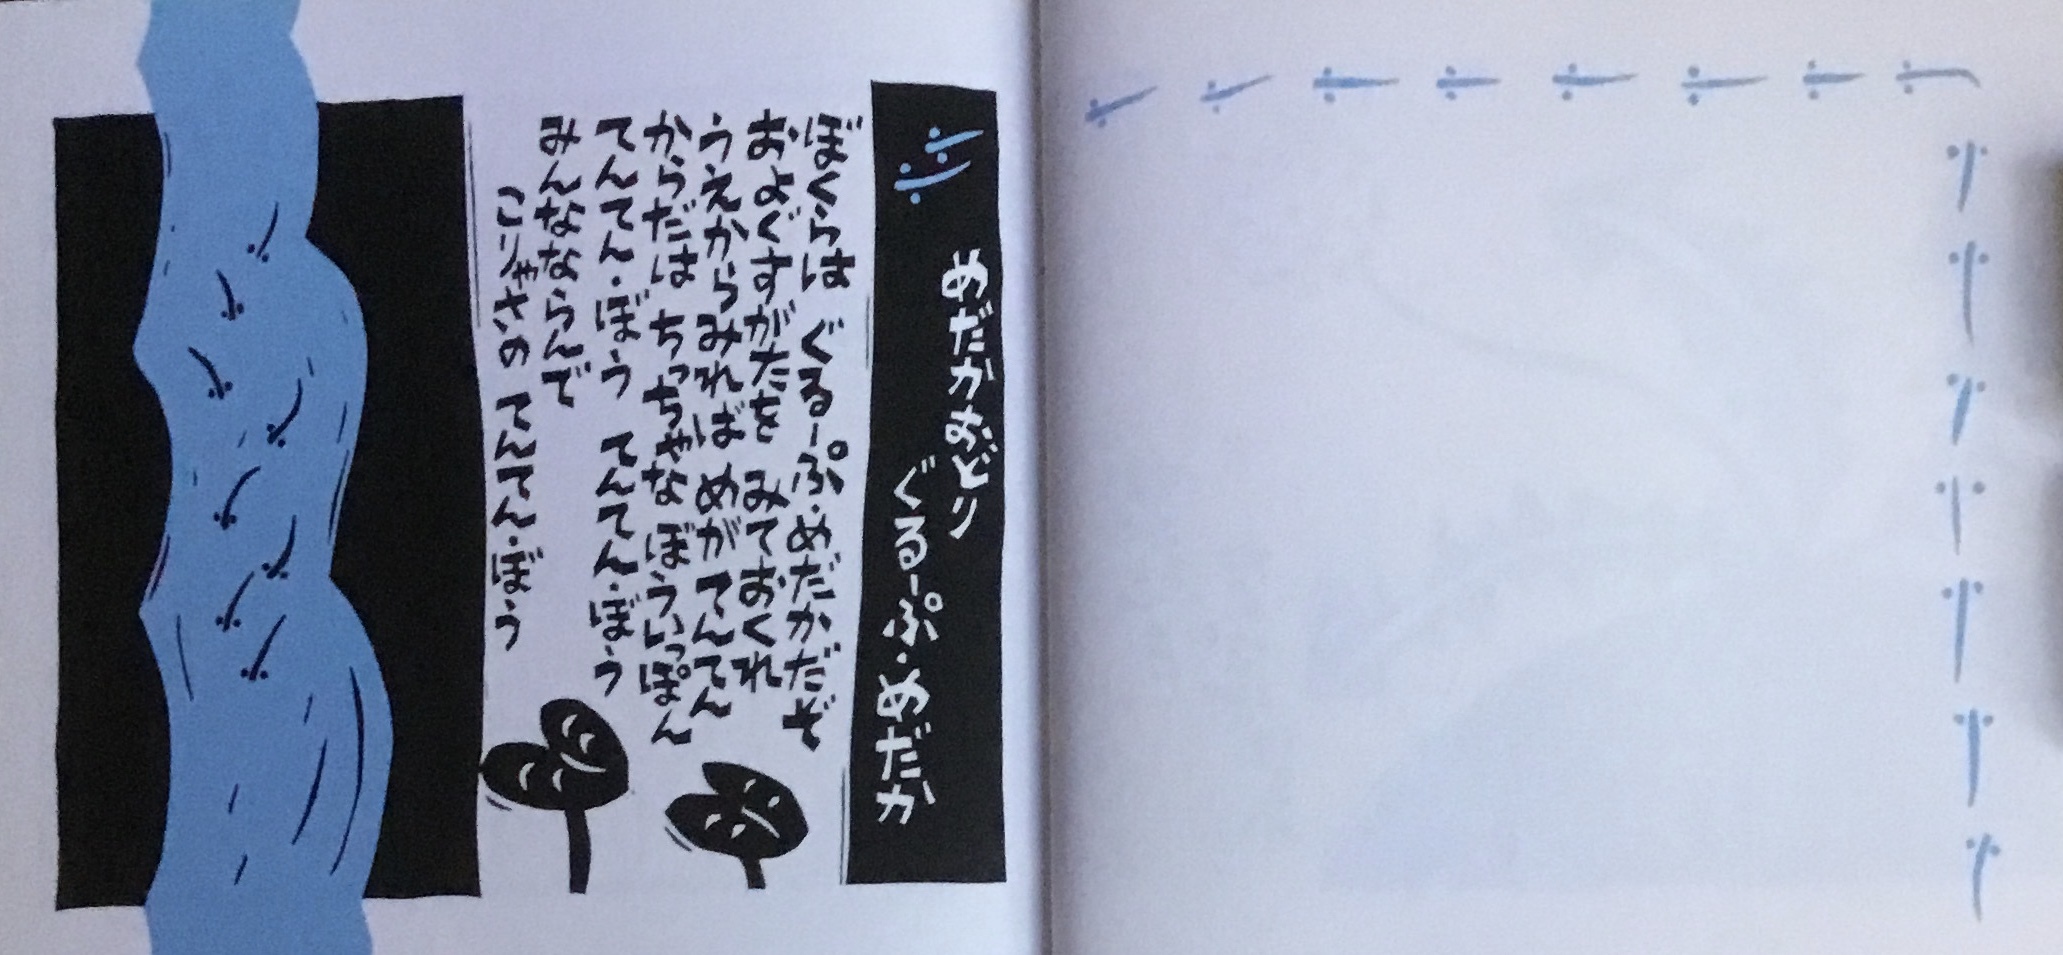 めだかおどり
ぐるーぷ・めだか
ぼくらは ぐるーぷ・めだかだぞ
およぐすがたを みておくれ
うえからみれば めが てんてん
からだは ちっちゃな ぼういっぽん
てんてん・ぼう てんてん・ぼう
みんなならんで
こりゃさの てんてん・ぼう